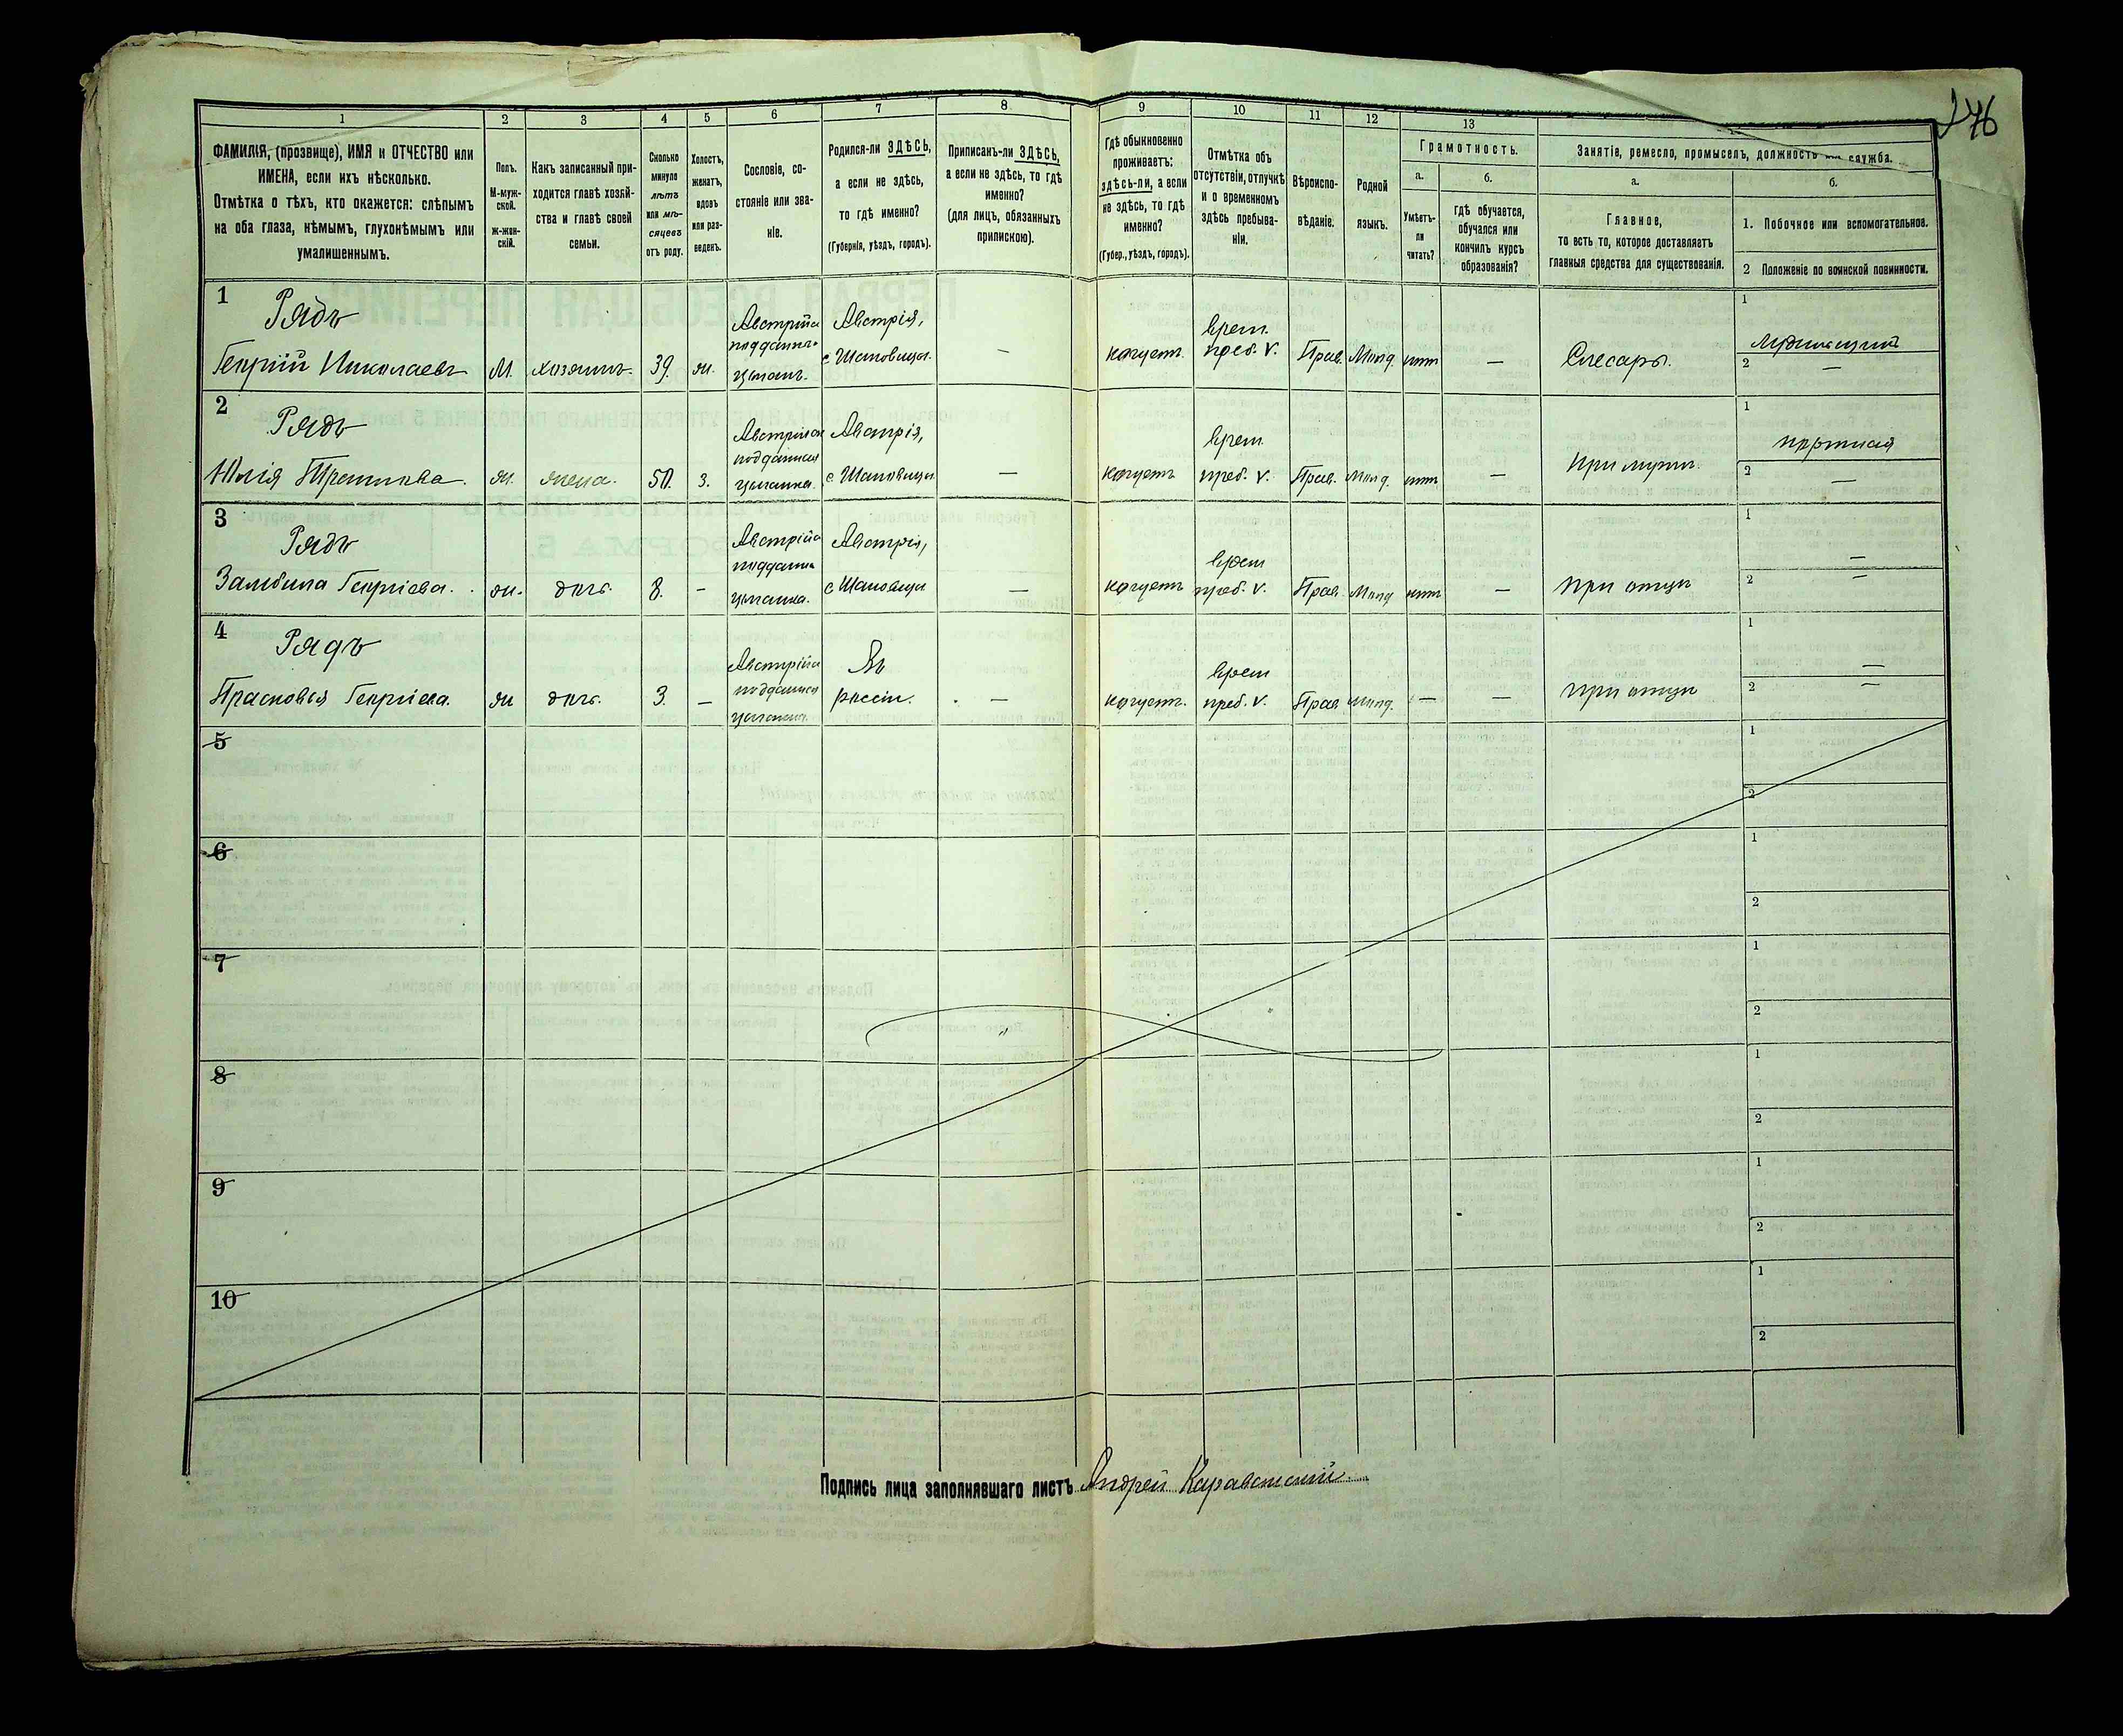 276
1 2 3 4 5 6 7 8 9 10 11 12 13
ФАМИЛІЯ, (прозвище), ИМЯ и ОТЧЕСТВО или
ИМЕНА, если ихъ нѣсколько.
Отмѣтка о тѣхъ, кто окажется: слѣпымъ
на оба глаза, нѣмымъ, глухонѣмымъ или
умалишеннымъ.
Полъ.
М-муж-
ской.
ж-жен-
скій.
Какъ записанный при-
ходится главѣ хозяй-
ства и главѣ своей
семьи.
Сколько
минуло
лѣтъ
или мѣ-
сяцевъ
отъ роду.
Холостъ,
женатъ,
вдовъ
или раз-
веденъ.
Сословіе, со-
стояніе или зва-
ніе.
Родился-ли ЗДѢСЬ,
а если не здѣсь,
то гдѣ именно?
(Губернія, уѣздъ, городъ).
Приписанъ-ли ЗДѢСЬ,
а если не здѣсь, то гдѣ
именно?
(для лицъ, обязанныхъ
припискою).
Гдѣ обыкновенно
проживаетъ:
здѣсь-ли, а если
не здѣсь, то гдѣ
именно?
(Губер., уѣздъ, городъ).
Отмѣтка объ
отсутствіи, отлучкѣ
и о временномъ
здѣсь пребыва-
ніи.
Вѣроиспо-
вѣданіе.
Родной
языкъ.
Грамотность.
а.
Умѣетъ-
ли
читать?
б.
Гдѣ обучается,
обучался или
кончилъ курсъ
образованія?
Занятіе, ремесло, промыселъ, должность или служба.
а.
Главное,
то есть то, которое доставляетъ
главныя средства для существованія.
б.
1. Побочное или вспомогательное.
2 Положеніе по воинской повинности.
1
Рядъ
Георгій Николаевъ
М.
хозяинъ.
39.
ж.
Австрійск
подданн.
цыганъ.
Австрія,
с Шиповицы.
—
кочуетъ.
врем.
преб. v.
Прав.
Молд.
нѣтъ
—
Слесарь.
1
2 —
2
Рядъ
Юлія
ж.
жена.
50.
з.
Австрійск
подданная
цыганка.
Австрія,
с Шиповицы
—
кочуетъ
врем.
преб. v.
Прав.
Молд.
нѣтъ
—
При мужѣ.
1
2 —
3
Рядъ
Замбила Георгіева.
ж.
дочь.
8.
—
Австрійск
подданная
цыганка.
Австрія,
с Шиповицы
—
кочуетъ
врем
преб. v.
Прав.
Молд
нѣтъ
—
При отцѣ
1 —
2 —
4
Рядъ
Прасковья Георгіева.
ж
дочь.
3.
—
Австрійск
подданная
цыганка.
Въ
россіи.
—
кочуетъ.
врем
преб. v.
Прав
Молд.
—
—
При отцѣ
1 —
2 —
5
1
2
6
1
2
7
1
2
8
1
2
9
1
2
10
1
2
Подпись лица заполнявшаго листъ Андрей